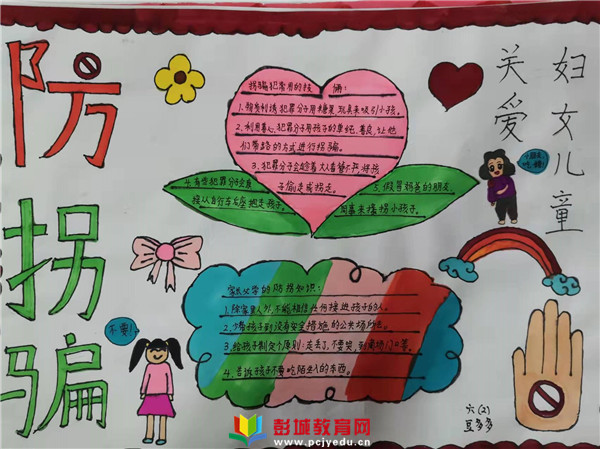 防拐骗
关爱
妇女儿童
拐骗犯常用的技俩:
1.物质利诱 犯罪分子用糖果、玩具来吸引小孩。
2.利用善心,犯罪分子用孩子的单纯、善良,让他
们带路的方式进行拐骗。
3.犯罪分子会趁着大人看管不严,将孩
子偷走或拐走。
接从自行车后座抱走孩子。
5.假冒妈爸的朋友、
同事来接拐小孩子。
家长必学的防拐知识:
1.除家里人外,不能相信任何接近孩子的人。
2.少带孩子到没有安全措施的公共场所去。
3.给孩子制定个原则:走丢了,不要哭,到商场门口等。
4.告诉孩子不要吃陌生人的东西。
不要!
六(2)
豆多多
彭城教育网
www.pcjyedu.cn